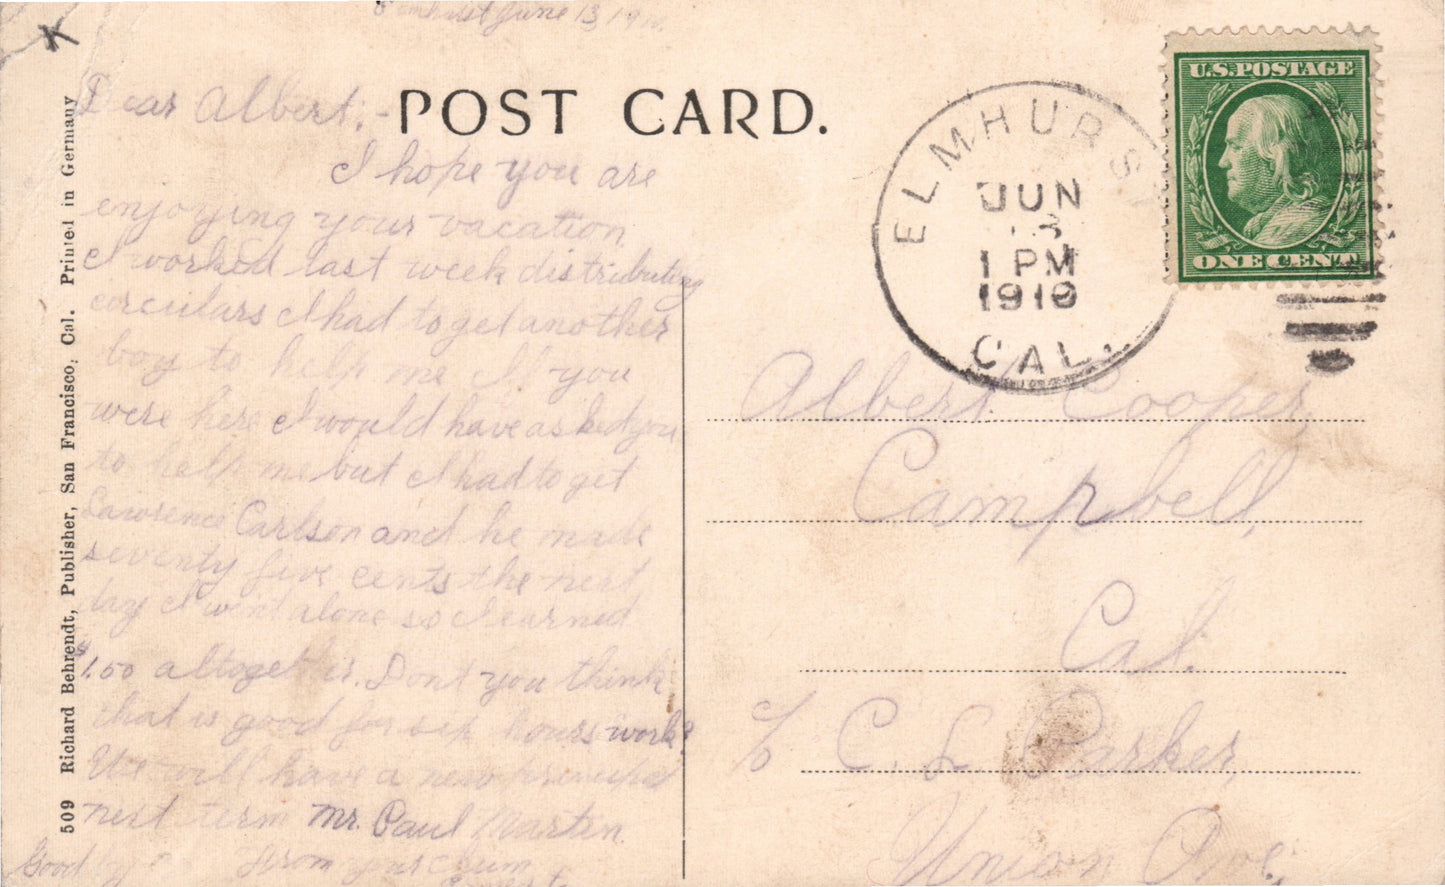 Elmhurst June 13, 1910.
Dear Albert; -
POST CARD.
I hope you are
enjoying your vacation
I worked last week distributing
circulars I had to get another
boy to help me If you
were here I would have asked you
to help me but I had to get
Lawrence Carlson and he made
seventy five cents the next
day I went alone so I earned
$1.50 altogether. Dont you think
that is good for six hours work?
We will have a new principal
next term Mr. Paul Martin
Good by
From your chum
509 Richard Behrendt, Publisher, San Francisco, Cal. Printed in Germany
K
ELMHURST
JUN
13
1 PM
1910
CAL.
U.S. POSTAGE
ONE CENT
Albert Cooper,
Campbell,
Cal.
c/o C. L. Parker,
Union Ave.